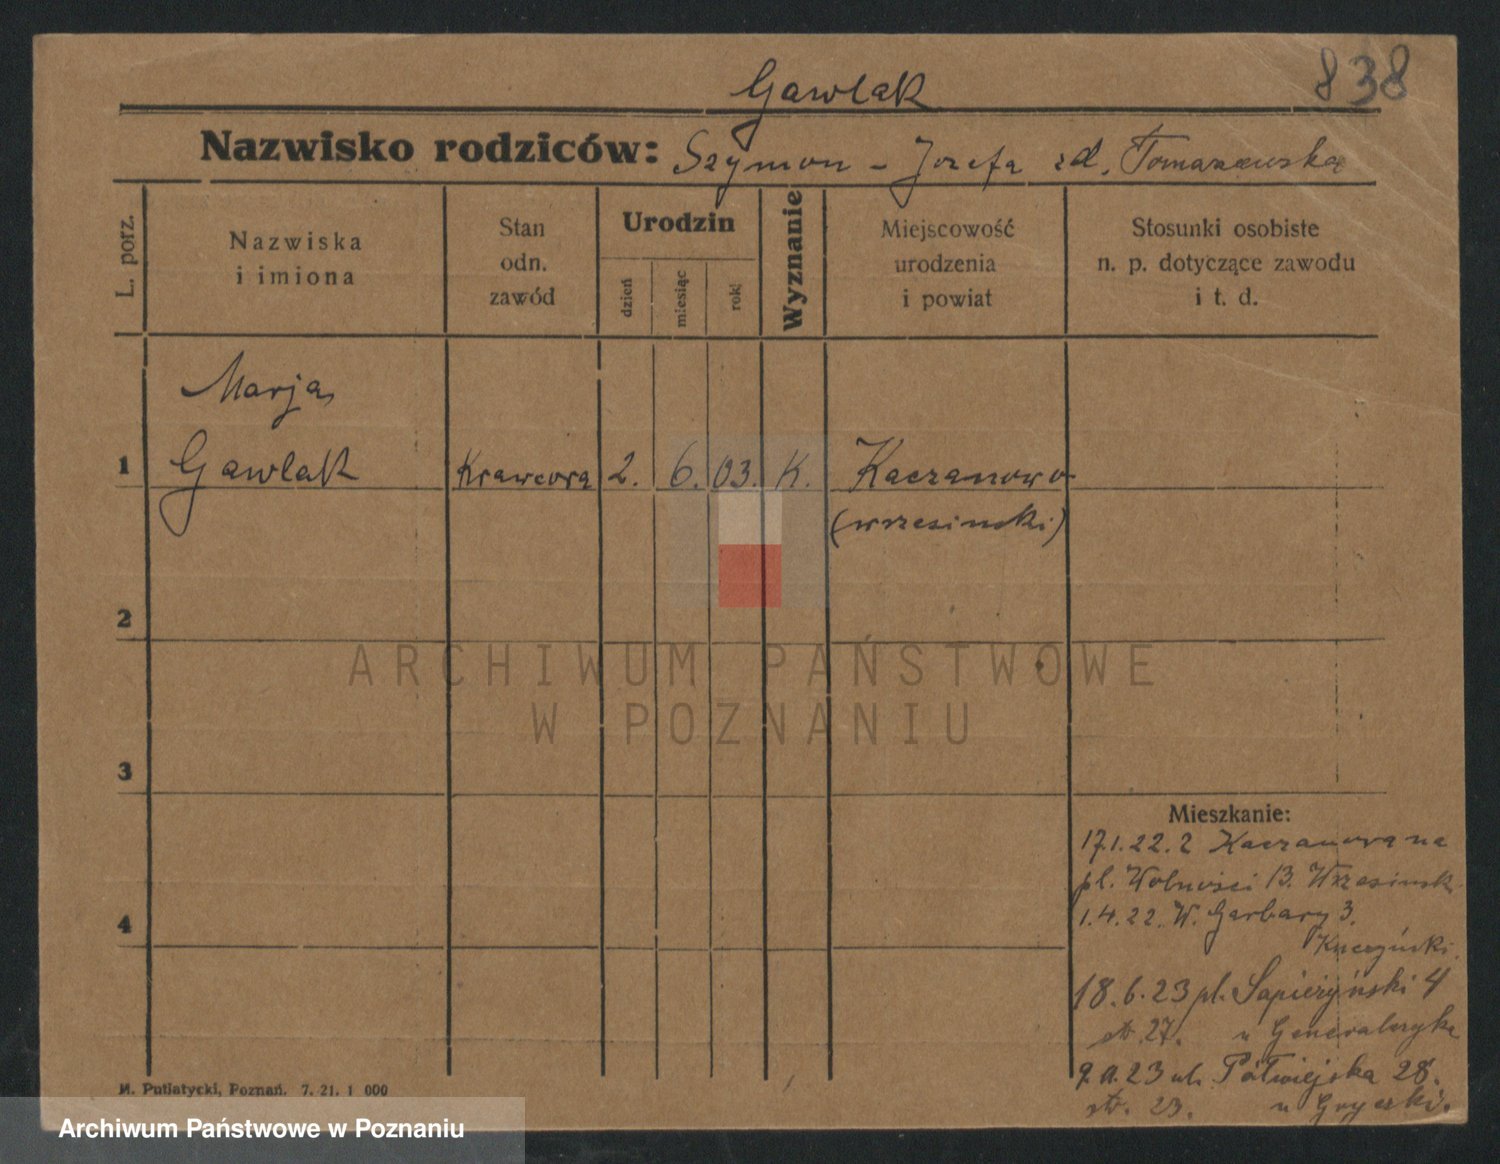 838
Gawlak
Nazwisko rodziców: Szymon - Jozefa zd. Tomaszewska
L. porz.
Nazwiska
i imiona
Stan
odn.
zawód
Urodzin
dzień
miesiąc
rok
Wyznanie
Miejscowość
urodzenia
i powiat
Stosunki osobiste
n. p. dotyczące zawodu
i t. d.
Marja
1 Gawlak Krawcowa 2. 6. 03. K. Kaczanowo
(wrzesinski)
2
ARCHIWUM PAŃSTWOWE
W POZNANIU
3
Mieszkanie:
17.1.22. z Kaczanowa na
pl. Wolności 13. Wrzesinsk
4
1.4.22. W. Garbary 3.
18.6.23 pl. Sapieżyński 4
str. 27. u
23 ul. Półwiejska 28.
str. 23. u
M. Putiatycki, Poznań. 7. 21. 1 000
Archiwum Państwowe w Poznaniu